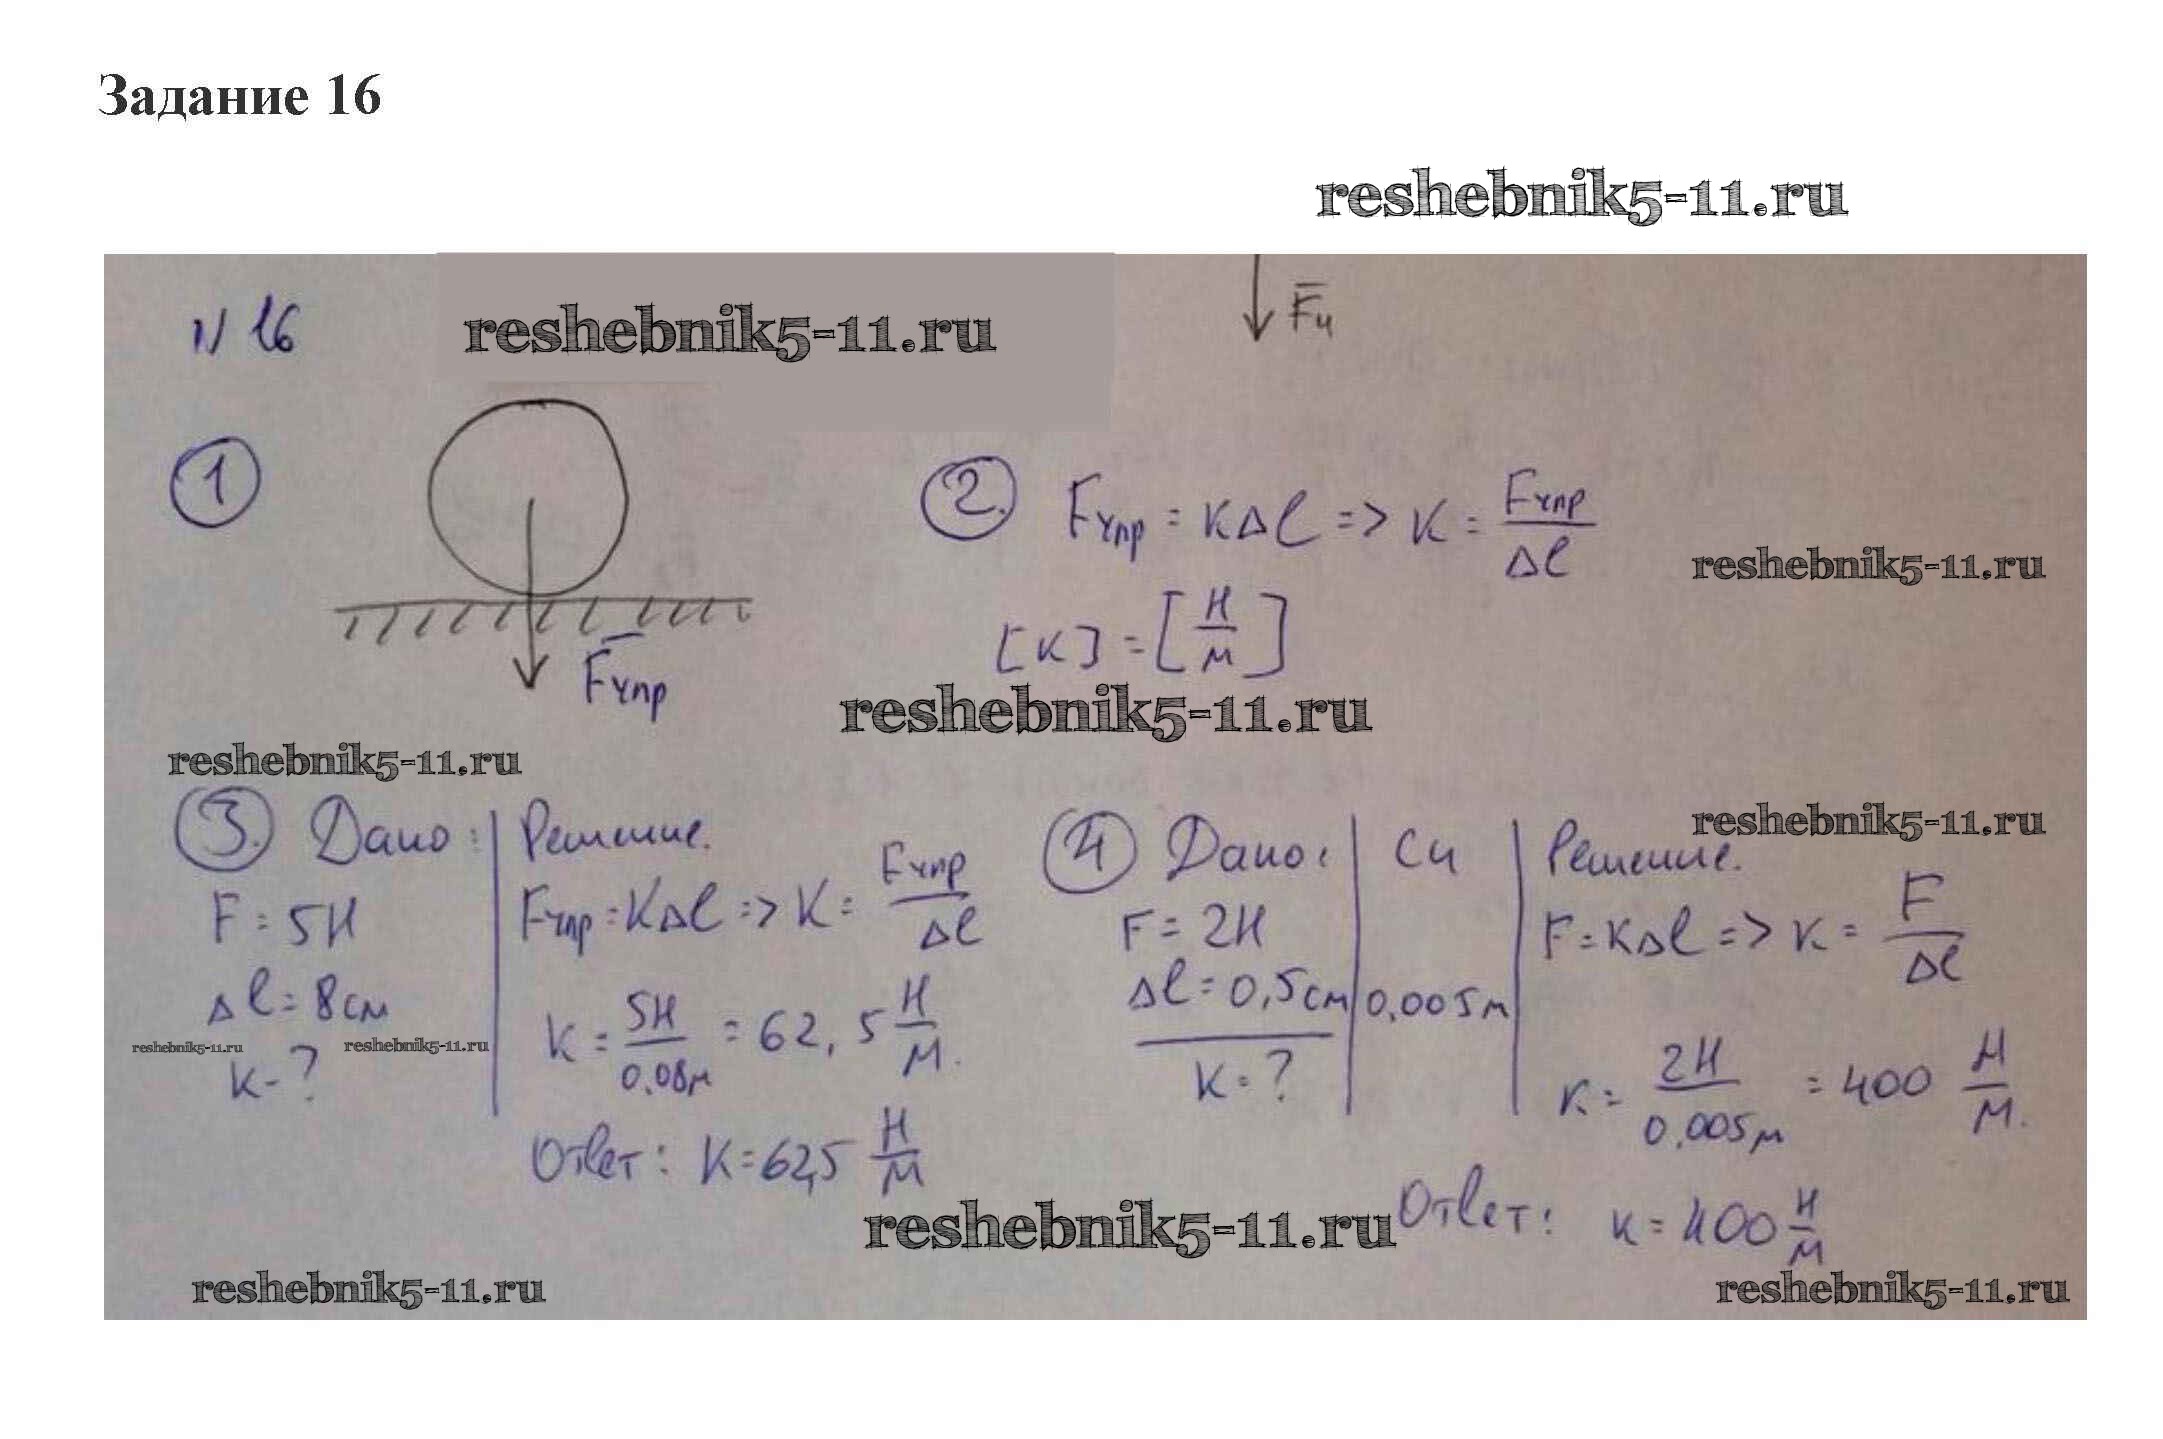 Задание 16
reshebnik5-11.ru
N 16
reshebnik5-11.ru
F и
1
2. Fупр = K∆l => K = Fупр / ∆l
reshebnik5-11.ru
[K] = [Н / м]
Fупр
reshebnik5-11.ru
reshebnik5-11.ru
3. Дано:
F = 5Н
∆l = 8см
reshebnik5-11.ru reshebnik5-11.ru
K - ?
Решение.
Fупр = K∆l => K = Fупр / ∆l
K = 5Н / 0.08м = 62,5 Н / м.
Ответ: K = 62,5 Н / м
reshebnik5-11.ru
4 Дано:
F = 2Н
∆l = 0,5см
K = ?
Си
0,005м
Решение.
F = K∆l => K = F / ∆l
K = 2Н / 0.005м = 400 Н / м.
Ответ: K = 400 Н / м
reshebnik5-11.ru
reshebnik5-11.ru
reshebnik5-11.ru